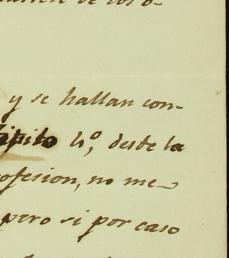 y se hallan con-
4º, desde la
ofesion, no me-
pero si por caso